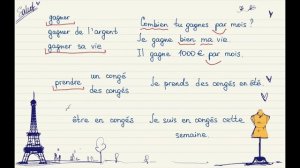 Salut
gagner
Combien tu gagnes par mois ?
gagner de l'argent
Je gagne bien ma vie
gagner sa vie
Il gagne 1000 € par mois.
prendre
un congé
des congés
Je prends des congés en été.
être en congés
Je suis en congés cette
semaine.